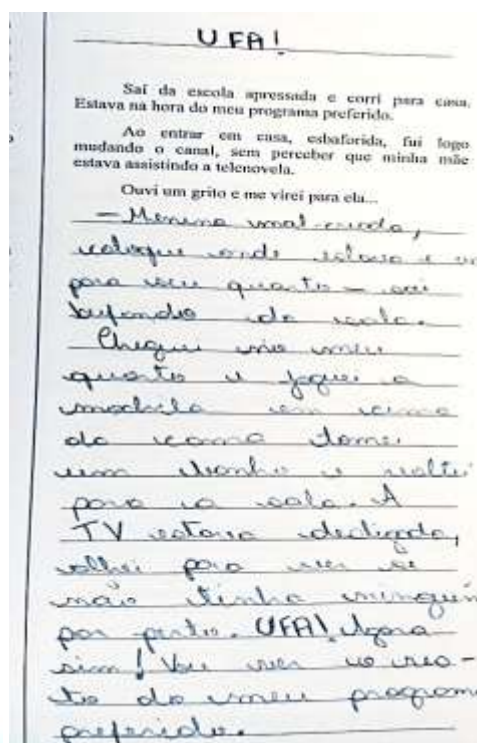 UFA!
Saí da escola apressada e corri para casa.
Estava na hora do meu programa preferido.
Ao entrar em casa, esbaforida, fui logo
mudando o canal, sem perceber que minha mãe
estava assistindo a telenovela.
Ouvi um grito e me virei para ela...
— Menina mal-criada,
coloque onde estava e
para seu quarto — saí
bufando da sala.
Cheguei no meu
quarto e joguei a
mochila em cima
da cama tomei
um banho e voltei
para a sala. A
TV estava desligada,
olhei para ver se
não tinha ninguém
por perto. UFA! Agora
sim! Vou ver o res-
to do meu programa
preferido.